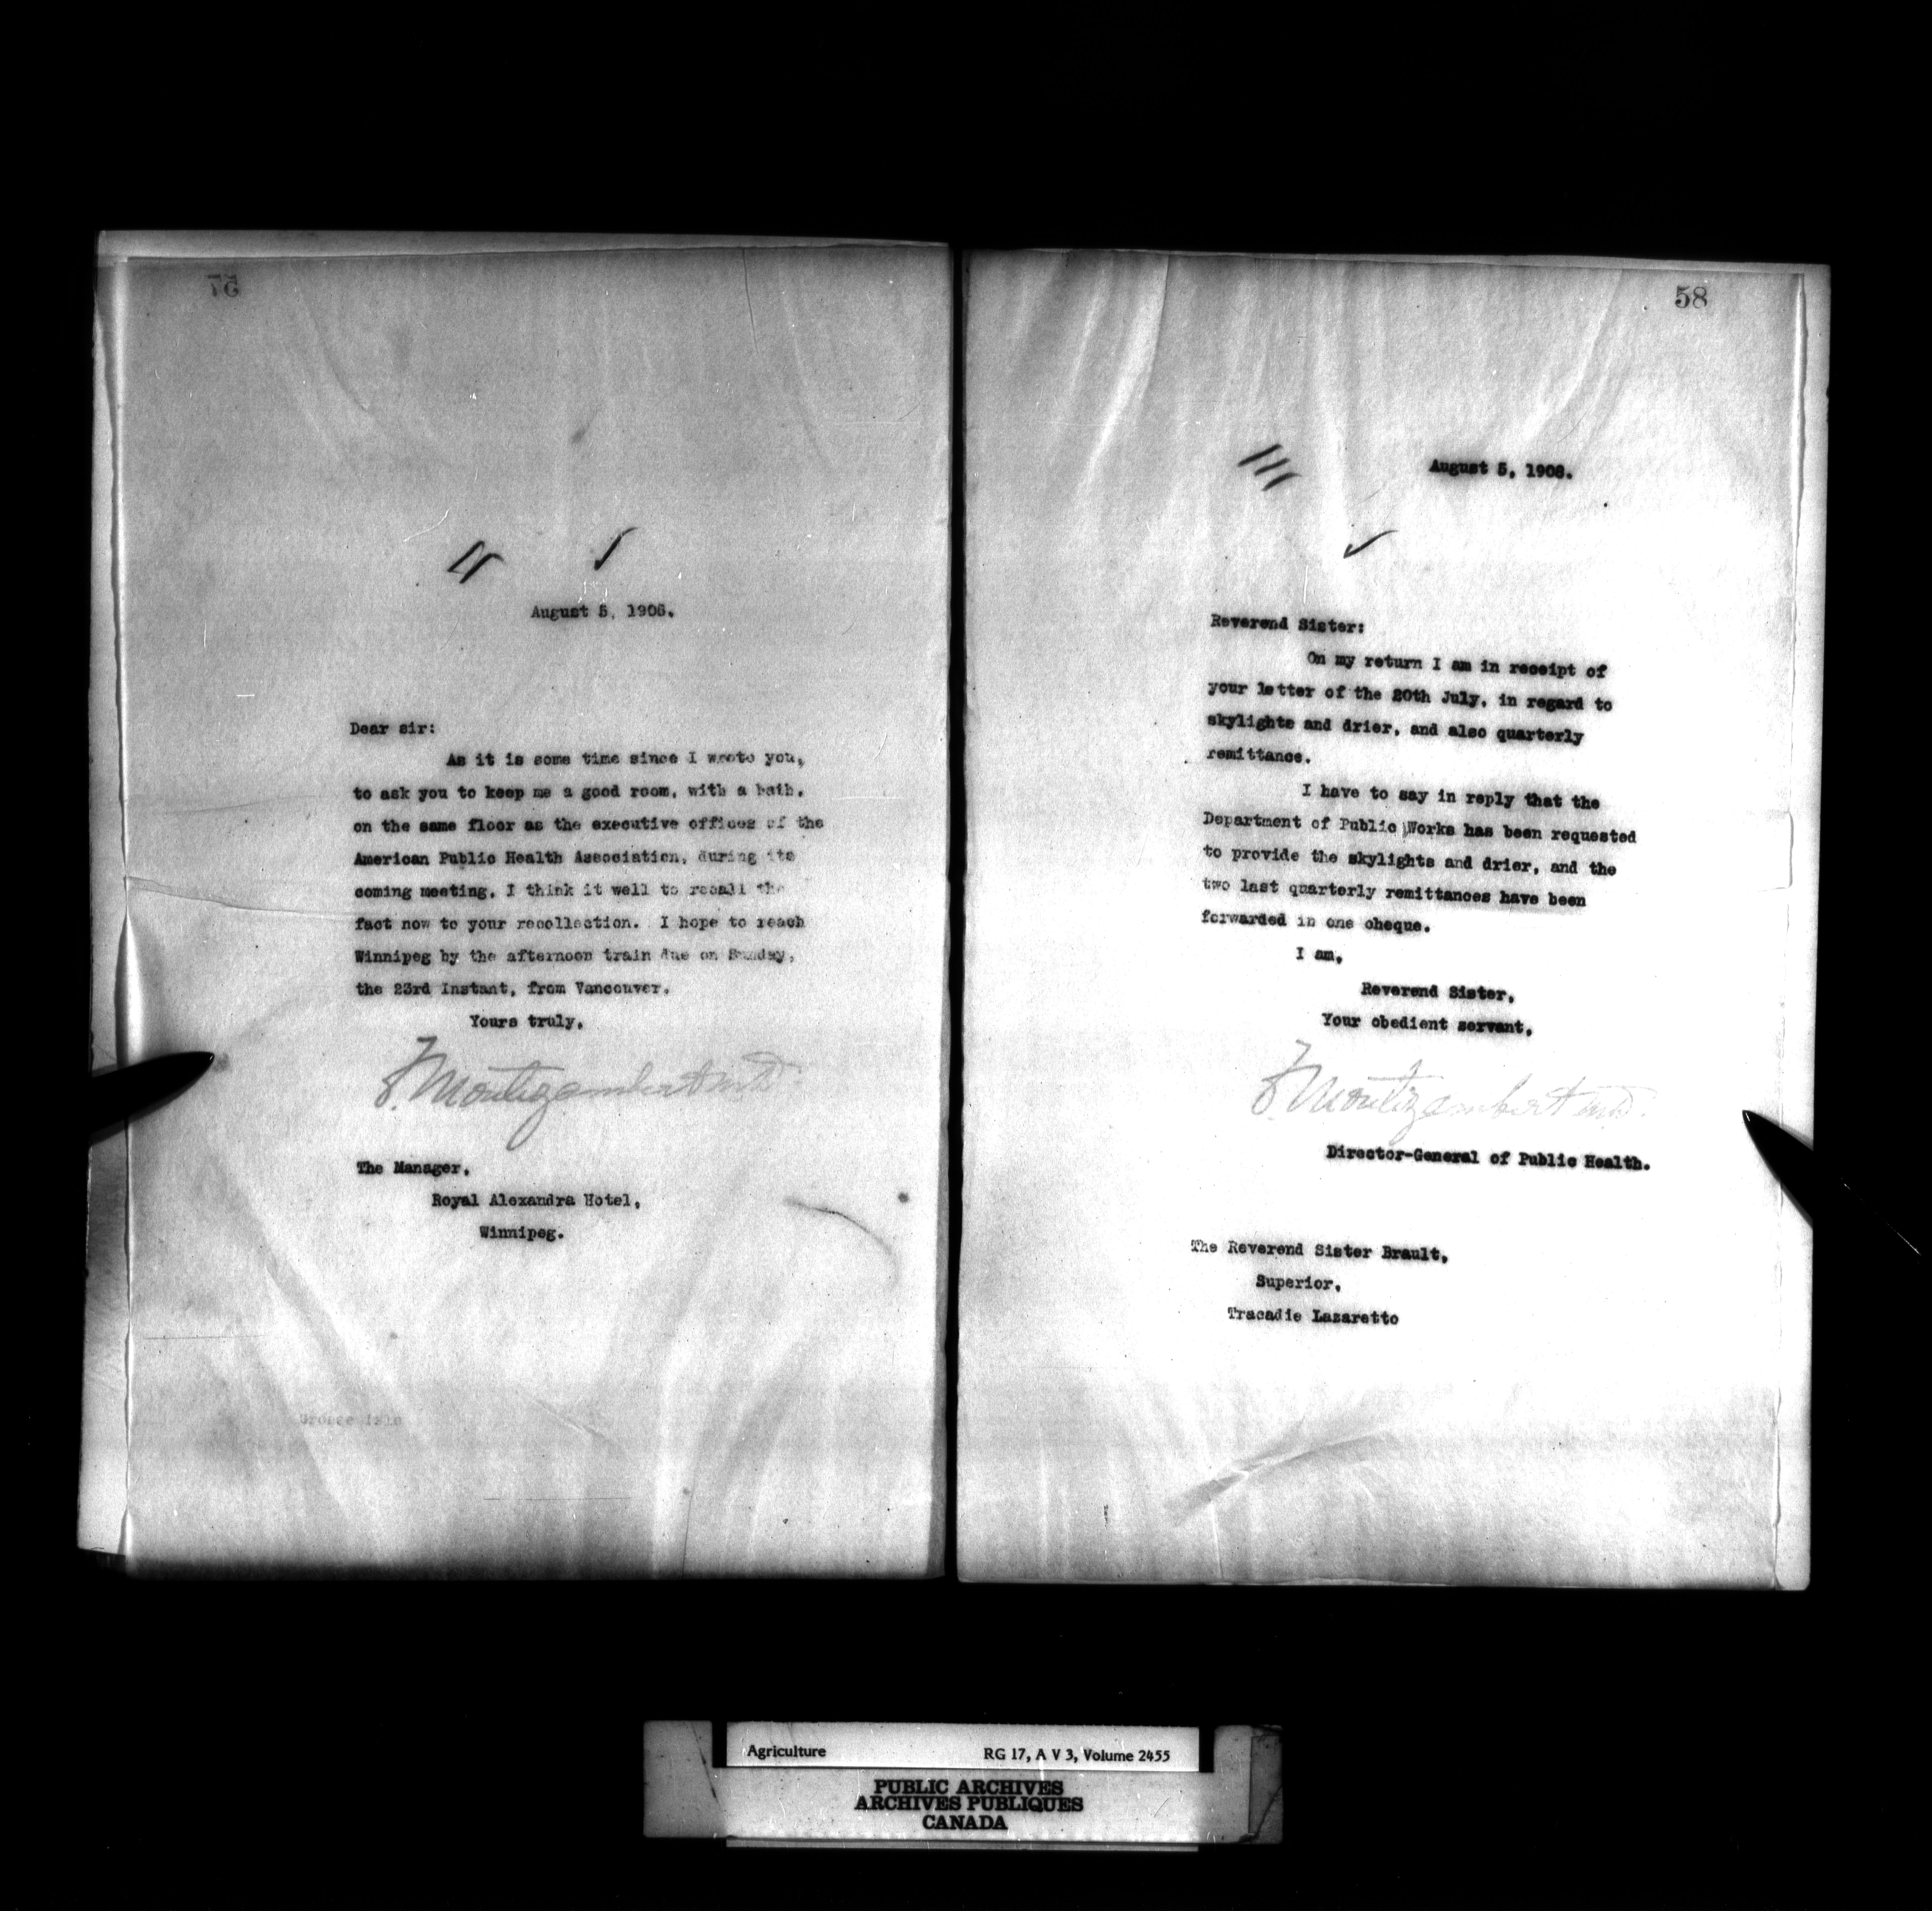 57
August 5, 1908.
Dear sir:
As it is some time since I wrote you,
to ask you to keep me a good room, with a bath,
on the same floor as the executive offices of the
American Public Health Association, during its
coming meeting, I think it well to recall the
fact now to your recollection. I hope to reach
Winnipeg by the afternoon train due on Sunday,
the 23rd Instant, from Vancouver.
Yours truly,
F. Montizambert M.D.
The Manager,
Royal Alexandra Hotel,
Winnipeg.
Grosse Isle
58
August 5, 1908.
Reverend Sister:
On my return I am in receipt of
your letter of the 20th July, in regard to
skylights and drier, and also quarterly
remittance.
I have to say in reply that the
Department of Public Works has been requested
to provide the skylights and drier, and the
two last quarterly remittances have been
forwarded in one cheque.
I am,
Reverend Sister,
Your obedient servant,
F. Montizambert M.D.
Director-General of Public Health.
The Reverend Sister Brault,
Superior,
Tracadie Lazaretto
Agriculture RG 17, A V 3, Volume 2455
PUBLIC ARCHIVES
ARCHIVES PUBLIQUES
CANADA